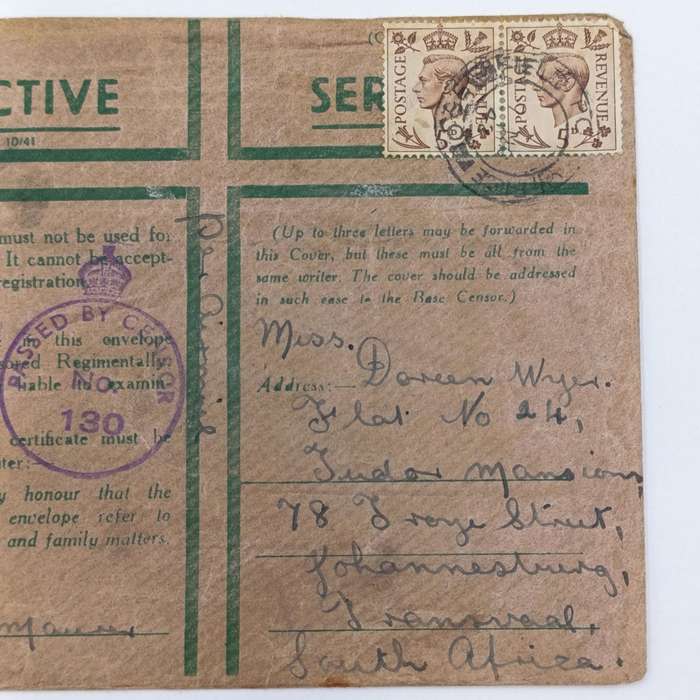 CTIVE
SER
(C
10/41
POSTAGE
REVENUE
5D
must not be used for
It cannot be accept-
registration.
no this envelope
sored Regimentally.
liable to examin
certificate must be
ter:—
y honour that the
envelope refer to
and family matters.
PASSED BY CENSOR
No.
130
(Up to three letters may be forwarded in
this Cover, but these must be all from the
same writer. The cover should be addressed
in such case to the Base Censor.)
Miss.
Address:— Doreen Wyer.
Flat No 24,
Tudor Mansions,
78 Troye Street,
Johannesburg,
Transvaal,
South Africa.